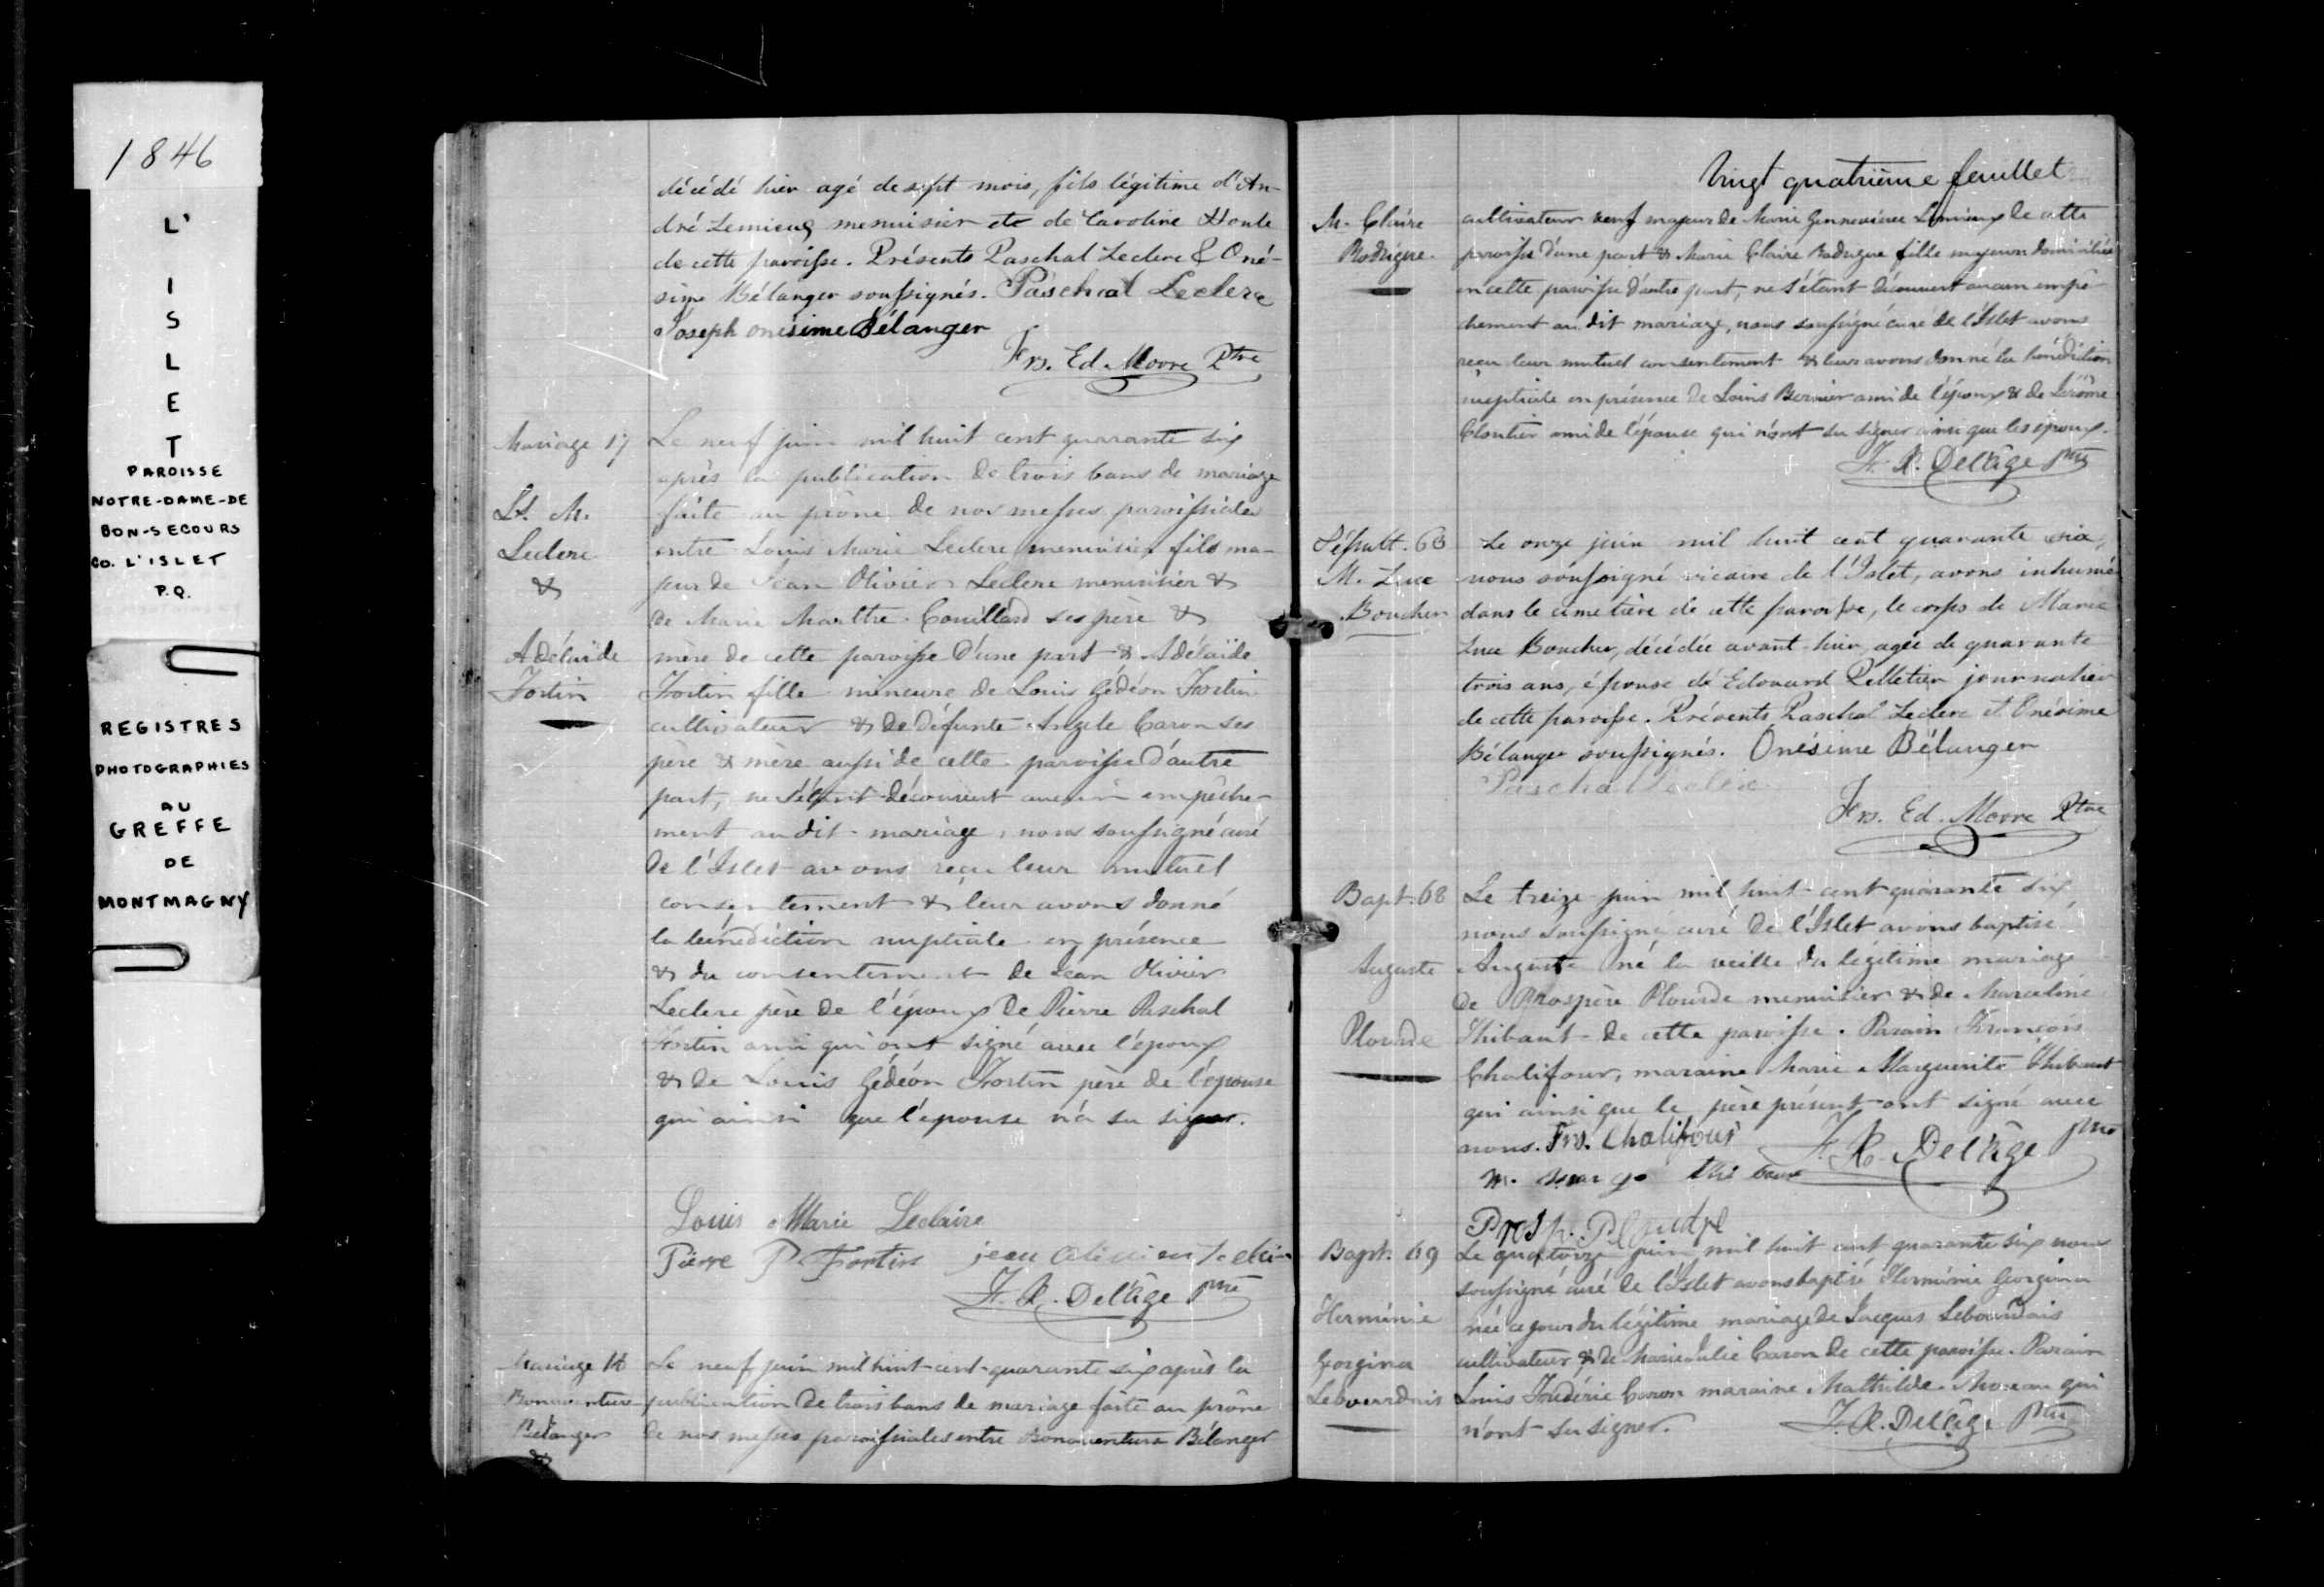 1846
L'
I
S
L
E
T
PAROISSE
NOTRE-DAME-DE
BON-SECOURS
CO. L'ISLET
P.Q.
REGISTRES
PHOTOGRAPHIES
AU
GREFFE
DE
MONTMAGNY
décédé hier agé de sept mois, fils légitime d'An-
dré Lemieux menuisier et de Caroline
de cette paroisse. Présents Paschal Leclerc & Oné-
sime Bélanger soussignés. Paschal Leclerc
Joseph onésime Bélanger
Frs. Ed. Moore Ptre
Mariage 17
Ls. M.
Leclerc
&
Adélaïde
Fortin
Le neuf juin mil huit cent quarante six
après la publication de trois bans de mariage
faite au prône de nos messes paroissiales
entre Louis Marie Leclerc menuisier fils ma-
jeur de Jean Olivier Leclerc menuisier &
de Marie Marthe Couillard ses père &
mère de cette paroisse d'une part & Adélaïde
Fortin fille mineure de Louis Gédéon Fortin
cultivateur & de défunte Angele Caron ses
père & mère aussi de cette paroisse d'autre
part, ne s'étant découvert aucun empêche-
ment au dit mariage, nous soussigné curé
de l'Islet avons reçu leur mutuel
consentement & leur avons donné
la bénédiction nuptiale en présence
& du consentement de Jean Olivier
Leclerc père de l'époux de Pierre Paschal
Fortin ami qui ont signé avec l'époux
& de Louis Gédéon Fortin père de l'épouse
qui ainsi que l'épouse n'a su signer.
Louis Marie Leclaire
Pierre P Fortin jean
F. X. Delâge Ptre
Mariage 18
Bonaventure
Bélanger
&
Le neuf juin mil huit cent quarante six après la
publication de trois bans de mariage faite au prône
de nos messes paroissiales entre Bonaventure Bélanger
Vingt quatrième feuillet
M. Claire
Rodrigue
cultivateur veuf majeur de Marie Genneviève Lemieux de cette
paroisse d'une part & Marie Claire Rodrigue fille majeure domiciliée
en cette paroisse d'autre part, ne s'étant découvert aucun empê-
chement au dit mariage, nous soussigné curé de l'Islet avons
reçu leur mutuel consentement & leur avons donné la bénédiction
nuptiale en présence de Louis Bernier ami de l'époux & de Jérôme
Cloutier ami de l'épouse qui n'ont su signer ainsi que les époux.
F. X. Delâge Ptre
Sépult. 68
M. Luce
Boucher
Le onze juin mil huit cent quarante six,
nous soussigné vicaire de l'Islet, avons inhumé
dans le cimetière de cette paroisse, le corps de Marie
Luce Boucher, décédée avant-hier, agée de quarante
trois ans, épouse de Edouard Pelletier journalier
de cette paroisse. Présents Paschal Leclerc et Onésime
Bélanger soussignés. Onésime Bélanger
Paschal Leclerc
Frs. Ed. Moore Ptre
Bapt. 68
Auguste
Plourde
Le treize juin mil huit cent quarante six
nous soussigné curé de l'Islet avons baptisé
Auguste né la veille du légitime mariage
de Prospère Plourde menuisier & de Marceline
Thibaut de cette paroisse. Parain François
Chalifour, maraine Marie Marguerite Thibaut
qui ainsi que le père présent ont signé avec
nous. Frs. Chalifour F. X. Delâge Ptre
m. marg thibaux
Prosp. Plourde
Bapt. 69
Herminie
Georgina
Lebourdais
Le quatorze juin mil huit cent quarante six nous
soussigné curé de l'Islet avons baptisé Herminie Georgina
née ce jour du légitime mariage de Jacques Lebourdais
cultivateur & de Marie Julie Caron de cette paroisse. Parain
Louis Frédéric Caron maraine Mathilde Moreau qui
n'ont su signer. F. X. Delâge Ptre